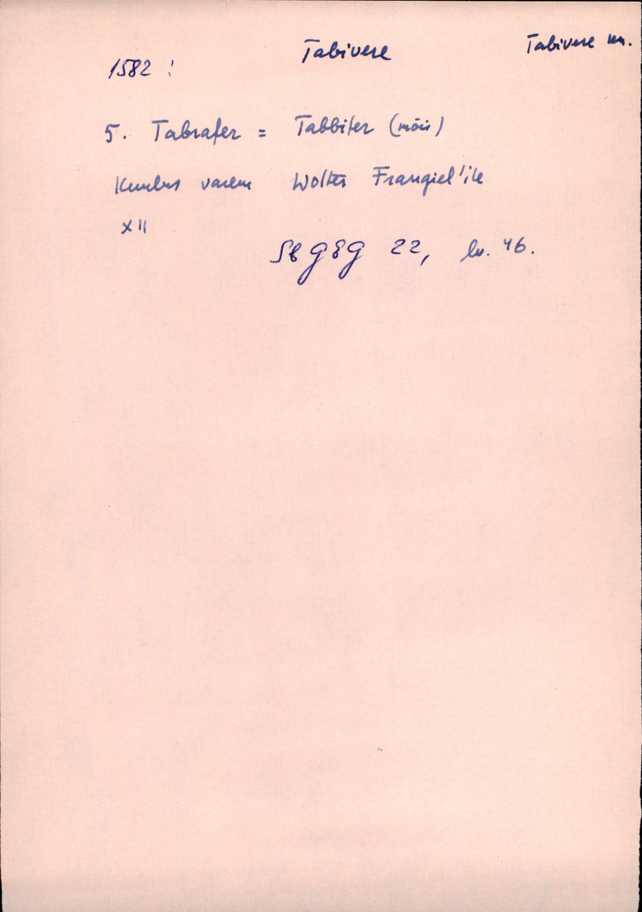 1582 : Tabivere Tabivere m.
5. Tabrafer = Tabbifer (mõis)
Kuulus varem Wolter Frangiel'ile
XII
Sb GEG 22, lk. 46.